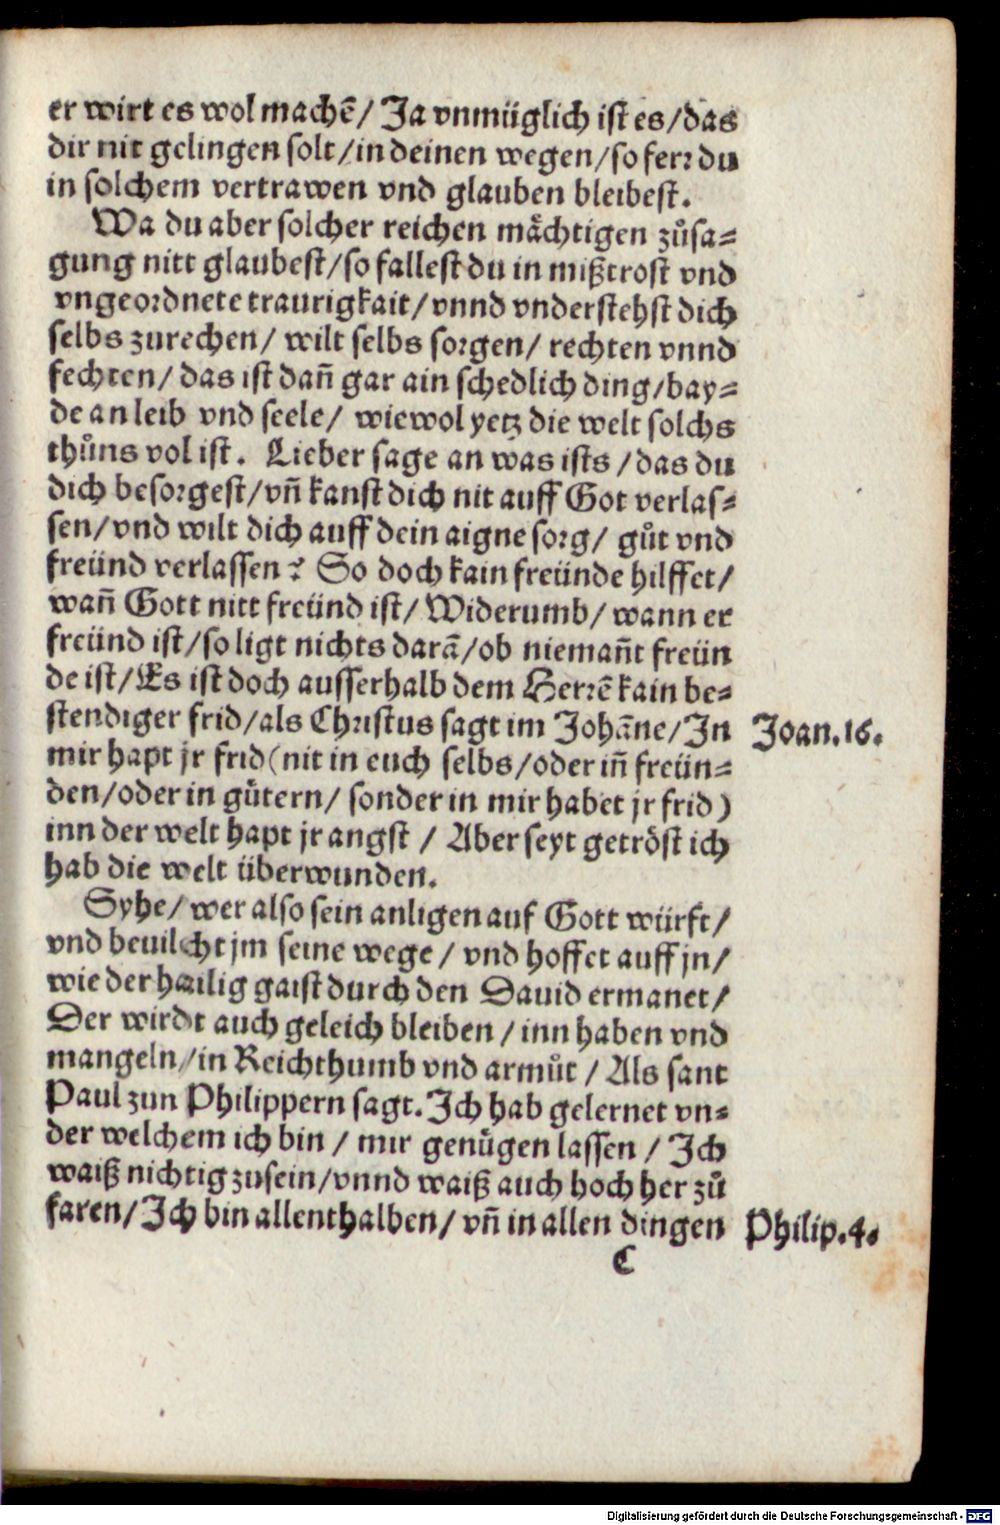 er wirt es wol machẽ/ Ja vnmüglich ist es/das
dir nit gelingen solt/in deinen wegen/so ferꝛ du
in solchem vertrawen vnd glauben bleibest.
Wa du aber solcher reichen mächtigen zůsa-
gung nitt glaubest/so fallest du in mißtrost vnd
vngeordnete traurigkait/vnnd vnderstehst dich
selbs zurechen/ wilt selbs sorgen/ rechten vnnd
fechten/ das ist dañ gar ain schedlich ding/bay-
de an leib vnd seele/ wiewol yetz die welt solchs
thůns vol ist. Lieber sage an was ists/das du
dich besorgest/vñ kanst dich nit auff Got verlas-
sen/vnd wilt dich auff dein aigne sorg/ gůt vnd
freünd verlassen? So doch kain freünde hilffet/
wañ Gott nitt freünd ist/ Widerumb/ wann er
freünd ist/so ligt nichts darã/ob niemañt freün
de ist/Es ist doch ausserhalb dem Herrẽ kain be-
stendiger frid/als Christus sagt im Johãne/In
Joan.16.
mir hapt jr frid(nit in euch selbs/oder iñ freün-
den/oder in gůtern/ sonder in mir habet jr frid)
inn der welt hapt jr angst / Aber seyt getröst ich
hab die welt überwunden.
Syhe/ wer also sein anligen auf Gott würft/
vnd beuilcht jm seine wege / vnd hoffet auff jn/
wie der hailig gaist durch den Dauid ermanet/
Der wirdt auch geleich bleiben / inn haben vnd
mangeln/in Reichthumb vnd armůt / Als sant
Paul zun Philippern sagt. Ich hab gelernet vn-
der welchem ich bin / mir genůgen lassen / Ich
waiß nichtig zusein/vnnd waiß auch hoch her zů
faren/Ich bin allenthalben/ vñ in allen dingen
Philip.4.
C
Digitalisierung gefördert durch die Deutsche Forschungsgemeinschaft - DFG